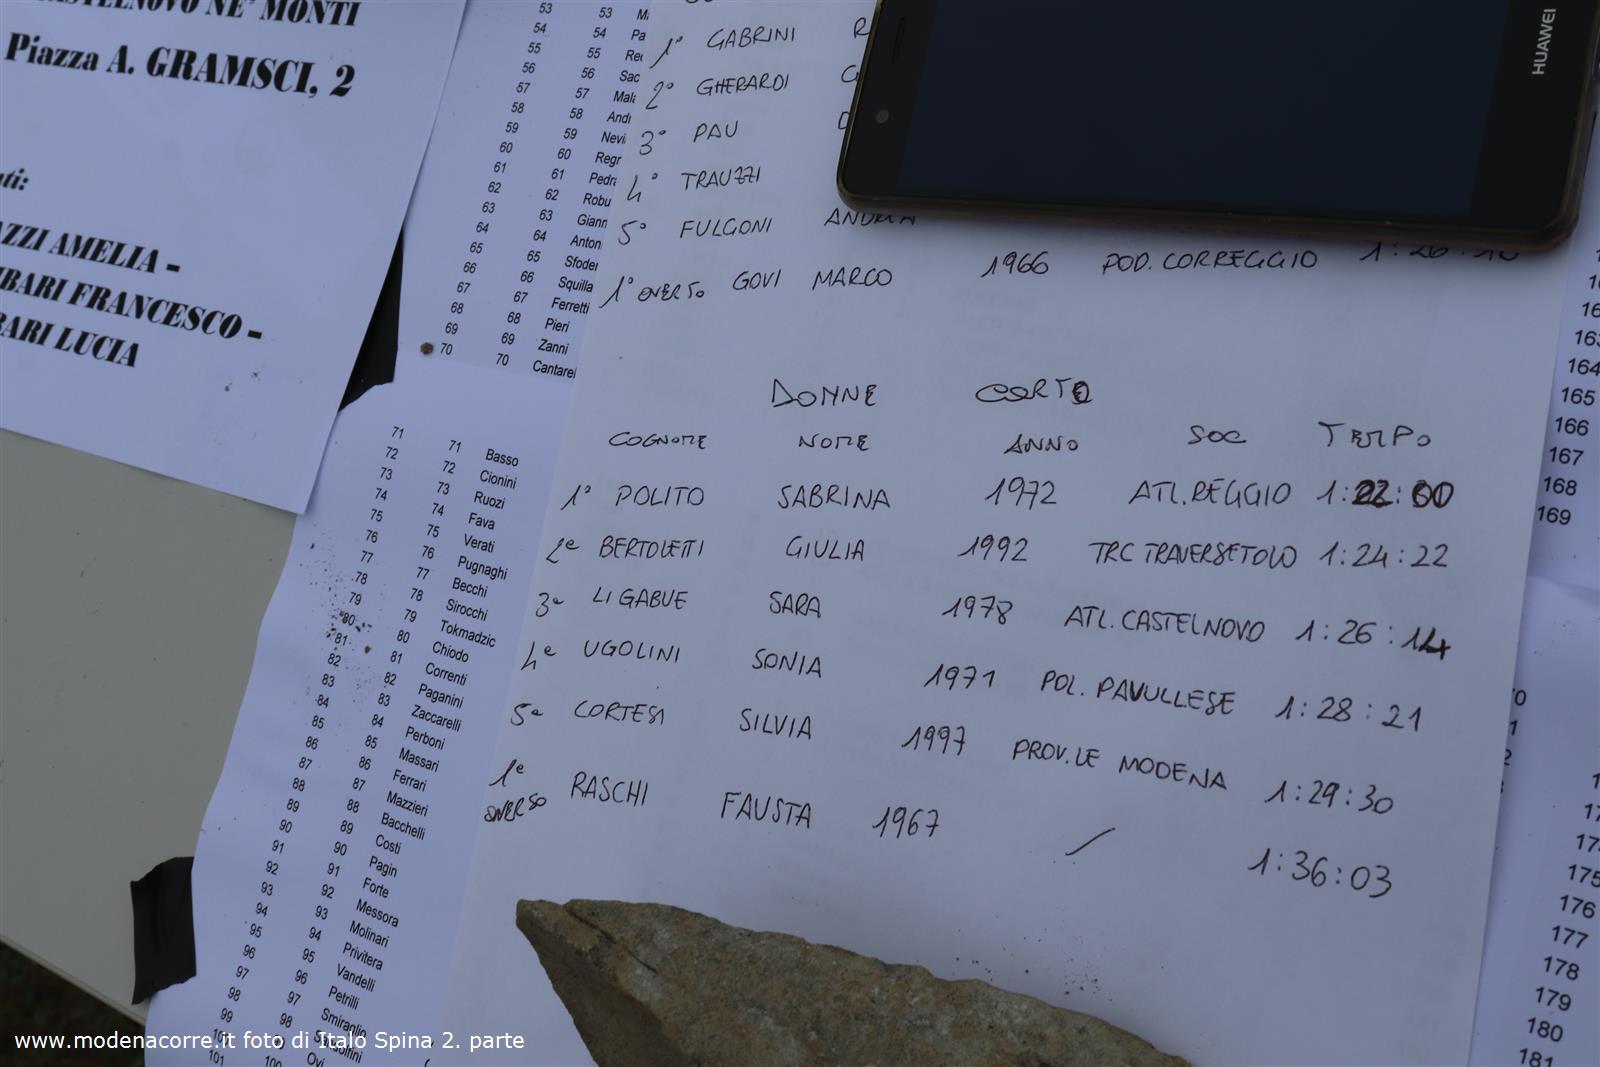 CASTELNOVO NE' MONTI
Piazza A. GRAMSCI, 2
AZZI AMELIA -
BARI FRANCESCO -
BARI LUCIA
53 53
54 54 Pa
55 55
56 56 Sac
57 57 Mala
58 58 And
59 59 Nevi
60 60 Regr
61 61 Pedra
62 62 Robu
63 63 Giann
64 64 Anton
65 65 Sfoder
66 66 Squilla
67 67 Ferretti
68 68 Pieri
69 69 Zanni
70 70 Cantarel
71 71 Basso
72 72 Cionini
73 73 Ruozi
74 74 Fava
75 75 Verati
76 76 Pugnaghi
77 77 Becchi
78 78 Sirocchi
79 79 Tokmadzic
80 80 Chiodo
81 81 Correnti
82 82 Paganini
83 83 Zaccarelli
84 84 Perboni
85 85 Massari
86 86 Ferrari
87 87 Mazzieri
88 88 Bacchelli
89 89 Costi
90 90 Pagin
91 91 Forte
92 92 Messora
93 93 Molinari
94 94 Privitera
95 95 Vandelli
96 96 Petrilli
97 97 Smiraglio
98 98
99
101 100 Ovi
1° GABRINI R
2° GHERARDI G
3° PAU D
4° TRAUZZI
5° FULGONI ANDREA
1° OVER 50 GOVI MARCO 1966 POD. CORREGGIO 1:26:10
DONNE CORTO
COGNOME NOME ANNO SOC TEMPO
1° POLITO SABRINA 1972 ATL.REGGIO 1:22:00
2e BERTOLETTI GIULIA 1992 TRC TRAVERSETOLO 1:24:22
3e LIGABUE SARA 1978 ATL.CASTELNOVO 1:26:14
4e UGOLINI SONIA 1971 POL. PAVULLESE 1:28:21
5e CORTESI SILVIA 1997 PROV.LE MODENA 1:29:30
1e OVER50 RASCHI FAUSTA 1967 / 1:36:03
HUAWEI
164
165
166
167
168
169
175
176
177
178
179
180
181
www.modenacorre.it foto di Italo Spina 2. parte